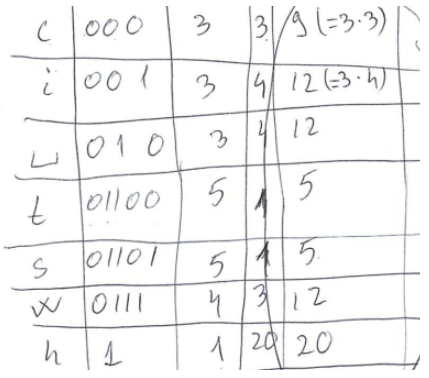 c 000 3 3 9 (=3·3)
i 001 3 4 12 (=3·4)
⌴ 010 3 4 12
t 01100 5 1 5
s 01101 5 1 5.
w 0111 4 3 12
h 1 1 20 20